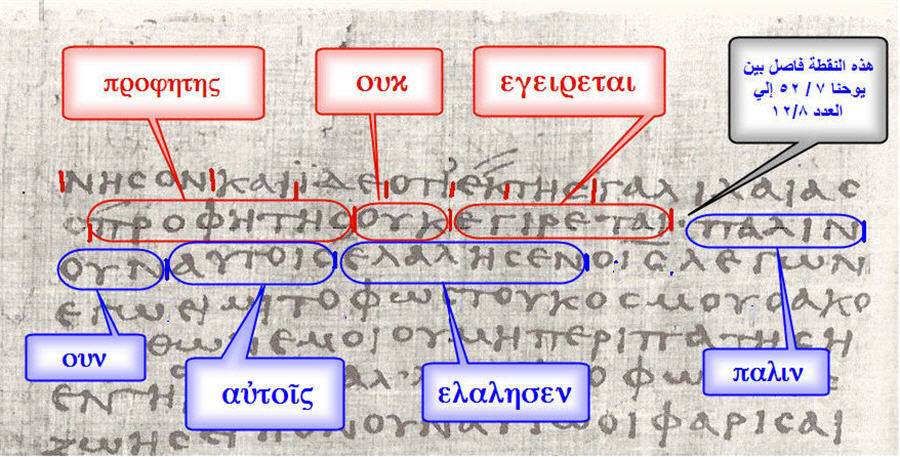 προφητης
ουκ
εγειρεται
هذه النقطة فاصل بين
يوحنا ٧ / ٥٢ إلي
العدد ١٢/٨
ΝΗϹΟΝΚΑΙΙΔΕΟΤΙΕΚΤΗϹΓΑΛΙΛΑΙΑϹ
ΠΡΟΦΗΤΗϹΟΥΚΕΓΙΡΕΤΑΙ ΠΑΛΙΝ
ΟΥΝΑΥΤΟΙϹΕΛΑΛΗϹΕΝΟΙϹΛΕΓΩΝ
ΕΓΩΕΙΜΙΤΟΦΩϹΤΟΥΚΟϹΜΟΥΟΑΚΟ
ΘΩΝΕΜΟΙΟΥΜΗΠΕΡΙΠΑΤΗϹΗ
ΕΝΤΗ
ΖΩΗϹ ΟΥΝΑΥΤΩΟΙΦΑΡΙϹΑΙ
ουν
αὐτοῖς
ελαλησεν
παλιν